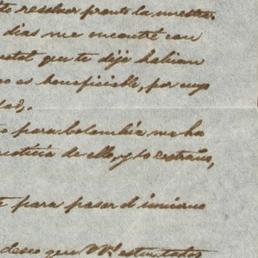 to resolver pronto la nuestra
dias me encontré con
que te dije habian
no es beneficiable, por cuyo
para Colombia me ha
noticia de ello, y lo extraño,
para pasar el invierno
deseo que